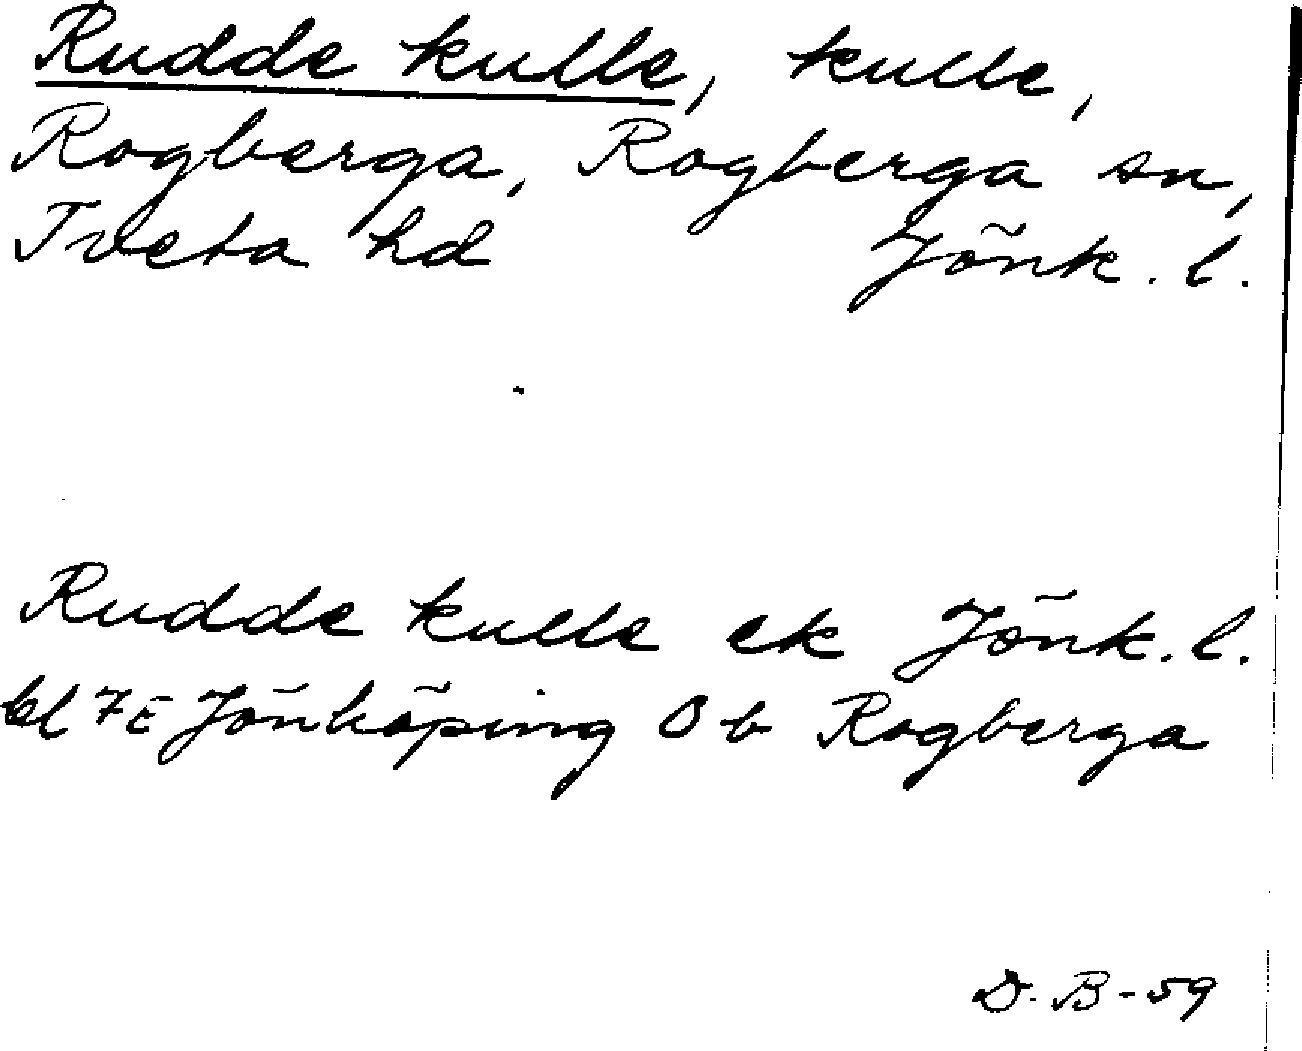 Rudde kulle, kulle,
Rogberga, Rogberga sn,
Tveta hd Jönk. l.
Rudde kulle ek Jönk. l.
bl 7E Jönköping O b Rogberga
D. B-59